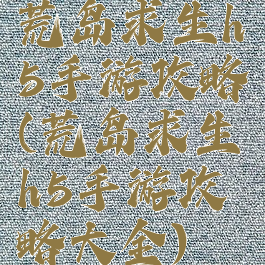 荒岛求生h
5手游攻略
(荒岛求生
h5手游攻
略大全)